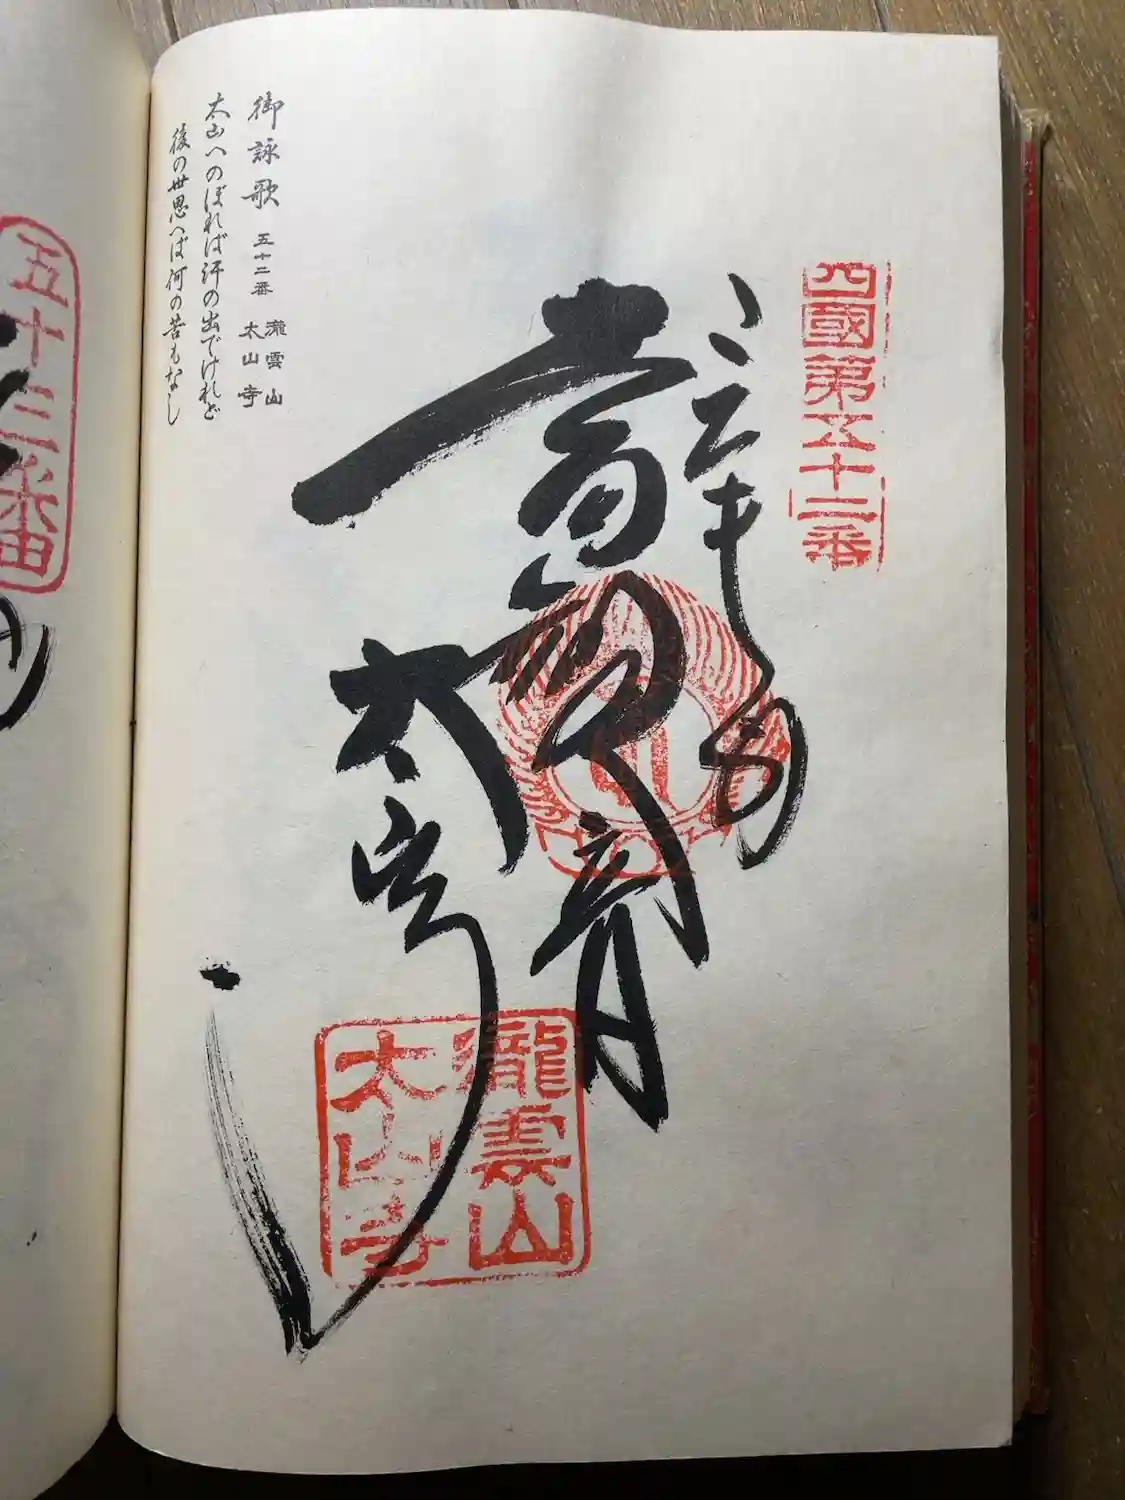 四國第五十二番
奉
太山寺
瀧雲山
太山寺
御詠歌 五十二番 瀧雲山 太山寺
太山へのぼれば汗の出でけれど
後の世思へば何の苦もなし
五十三番